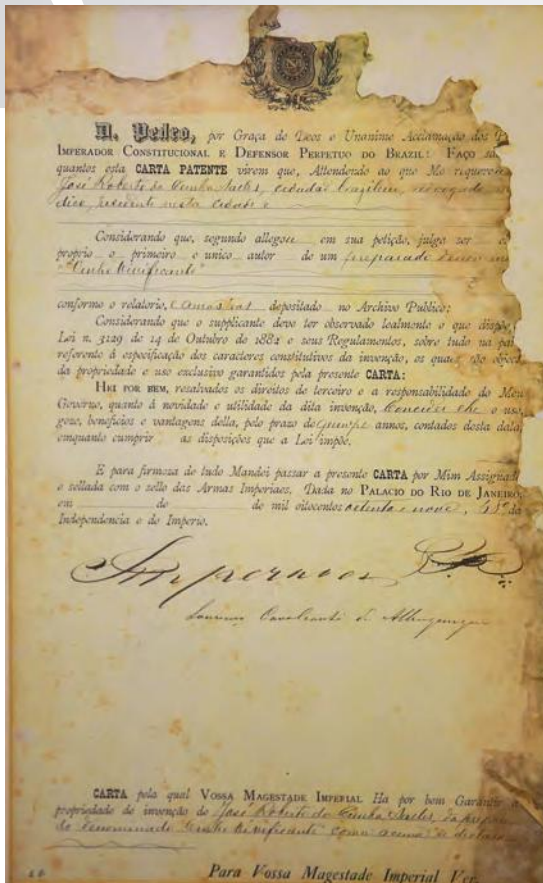 D. Pedro, por Graça de Deos e Unanime Acclamação dos
IMPERADOR CONSTITUCIONAL E DEFENSOR PERPETUO DO BRAZIL: FAÇO
quantos esta CARTA PATENTE virem que, Attendendo ao que Me requereu
José Roberto da Cunha Salles, cidadão brazileiro, advogado
residente nesta cidade
Considerando que, segundo allegou em sua petição, julga ser
proprio o primeiro e unico autor de um preparado
"Cunho Vivificante"
conforme o relatorio, e amostras depositado no Archivo Publico;
Considerando que o supplicante deve ter observado lealmente o que dispõe
Lei n. 3129 de 14 de Outubro de 1882 e seus Regulamentos, sobre tudo na
referente á especificação dos caracteres constitutivos da invenção, os quaes são
da propriedade e uso exclusivo garantidos pela presente CARTA:
HEI POR BEM, resalvados os direitos de terceiro e a responsabilidade do Meu
Governo, quanto á novidade e utilidade da dita invenção, Conceder-lhe o uso,
gozo, beneficios e vantagens della, pelo prazo de quinze annos, contados desta data,
emquanto cumprir as disposições que a Lei impõe.
E para firmeza de tudo Mandei passar a presente CARTA por Mim
e sellada com o sello das Armas Imperiaes. Dada no PALACIO DO RIO DE JANEIRO,
em de de mil oitocentos oitenta e nove, 68º da
Independencia e do Imperio.
Imperador
Lourenço Cavalcanti de Albuquerque
CARTA pela qual VOSSA MAGESTADE IMPERIAL Ha por bem Garantir a
propriedade de invenção de José Roberto da Cunha Salles,
do denominado "Cunho Vivificante" como acima se declara
Para Vossa Magestade Imperial Ver